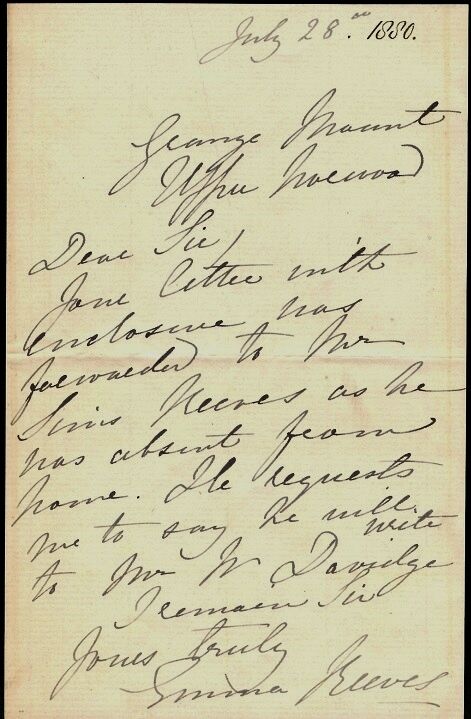 July 28th. 1880.
Grange Mount
Upper Norwood
Dear Sir,
Your letter with
enclosure was
forwarded to Mr
Sims Reeves as he
was absent from
home. He requests
me to say he will
write
to Mr W Davidge
I remain Sir
Yours truly
Emma Reeves